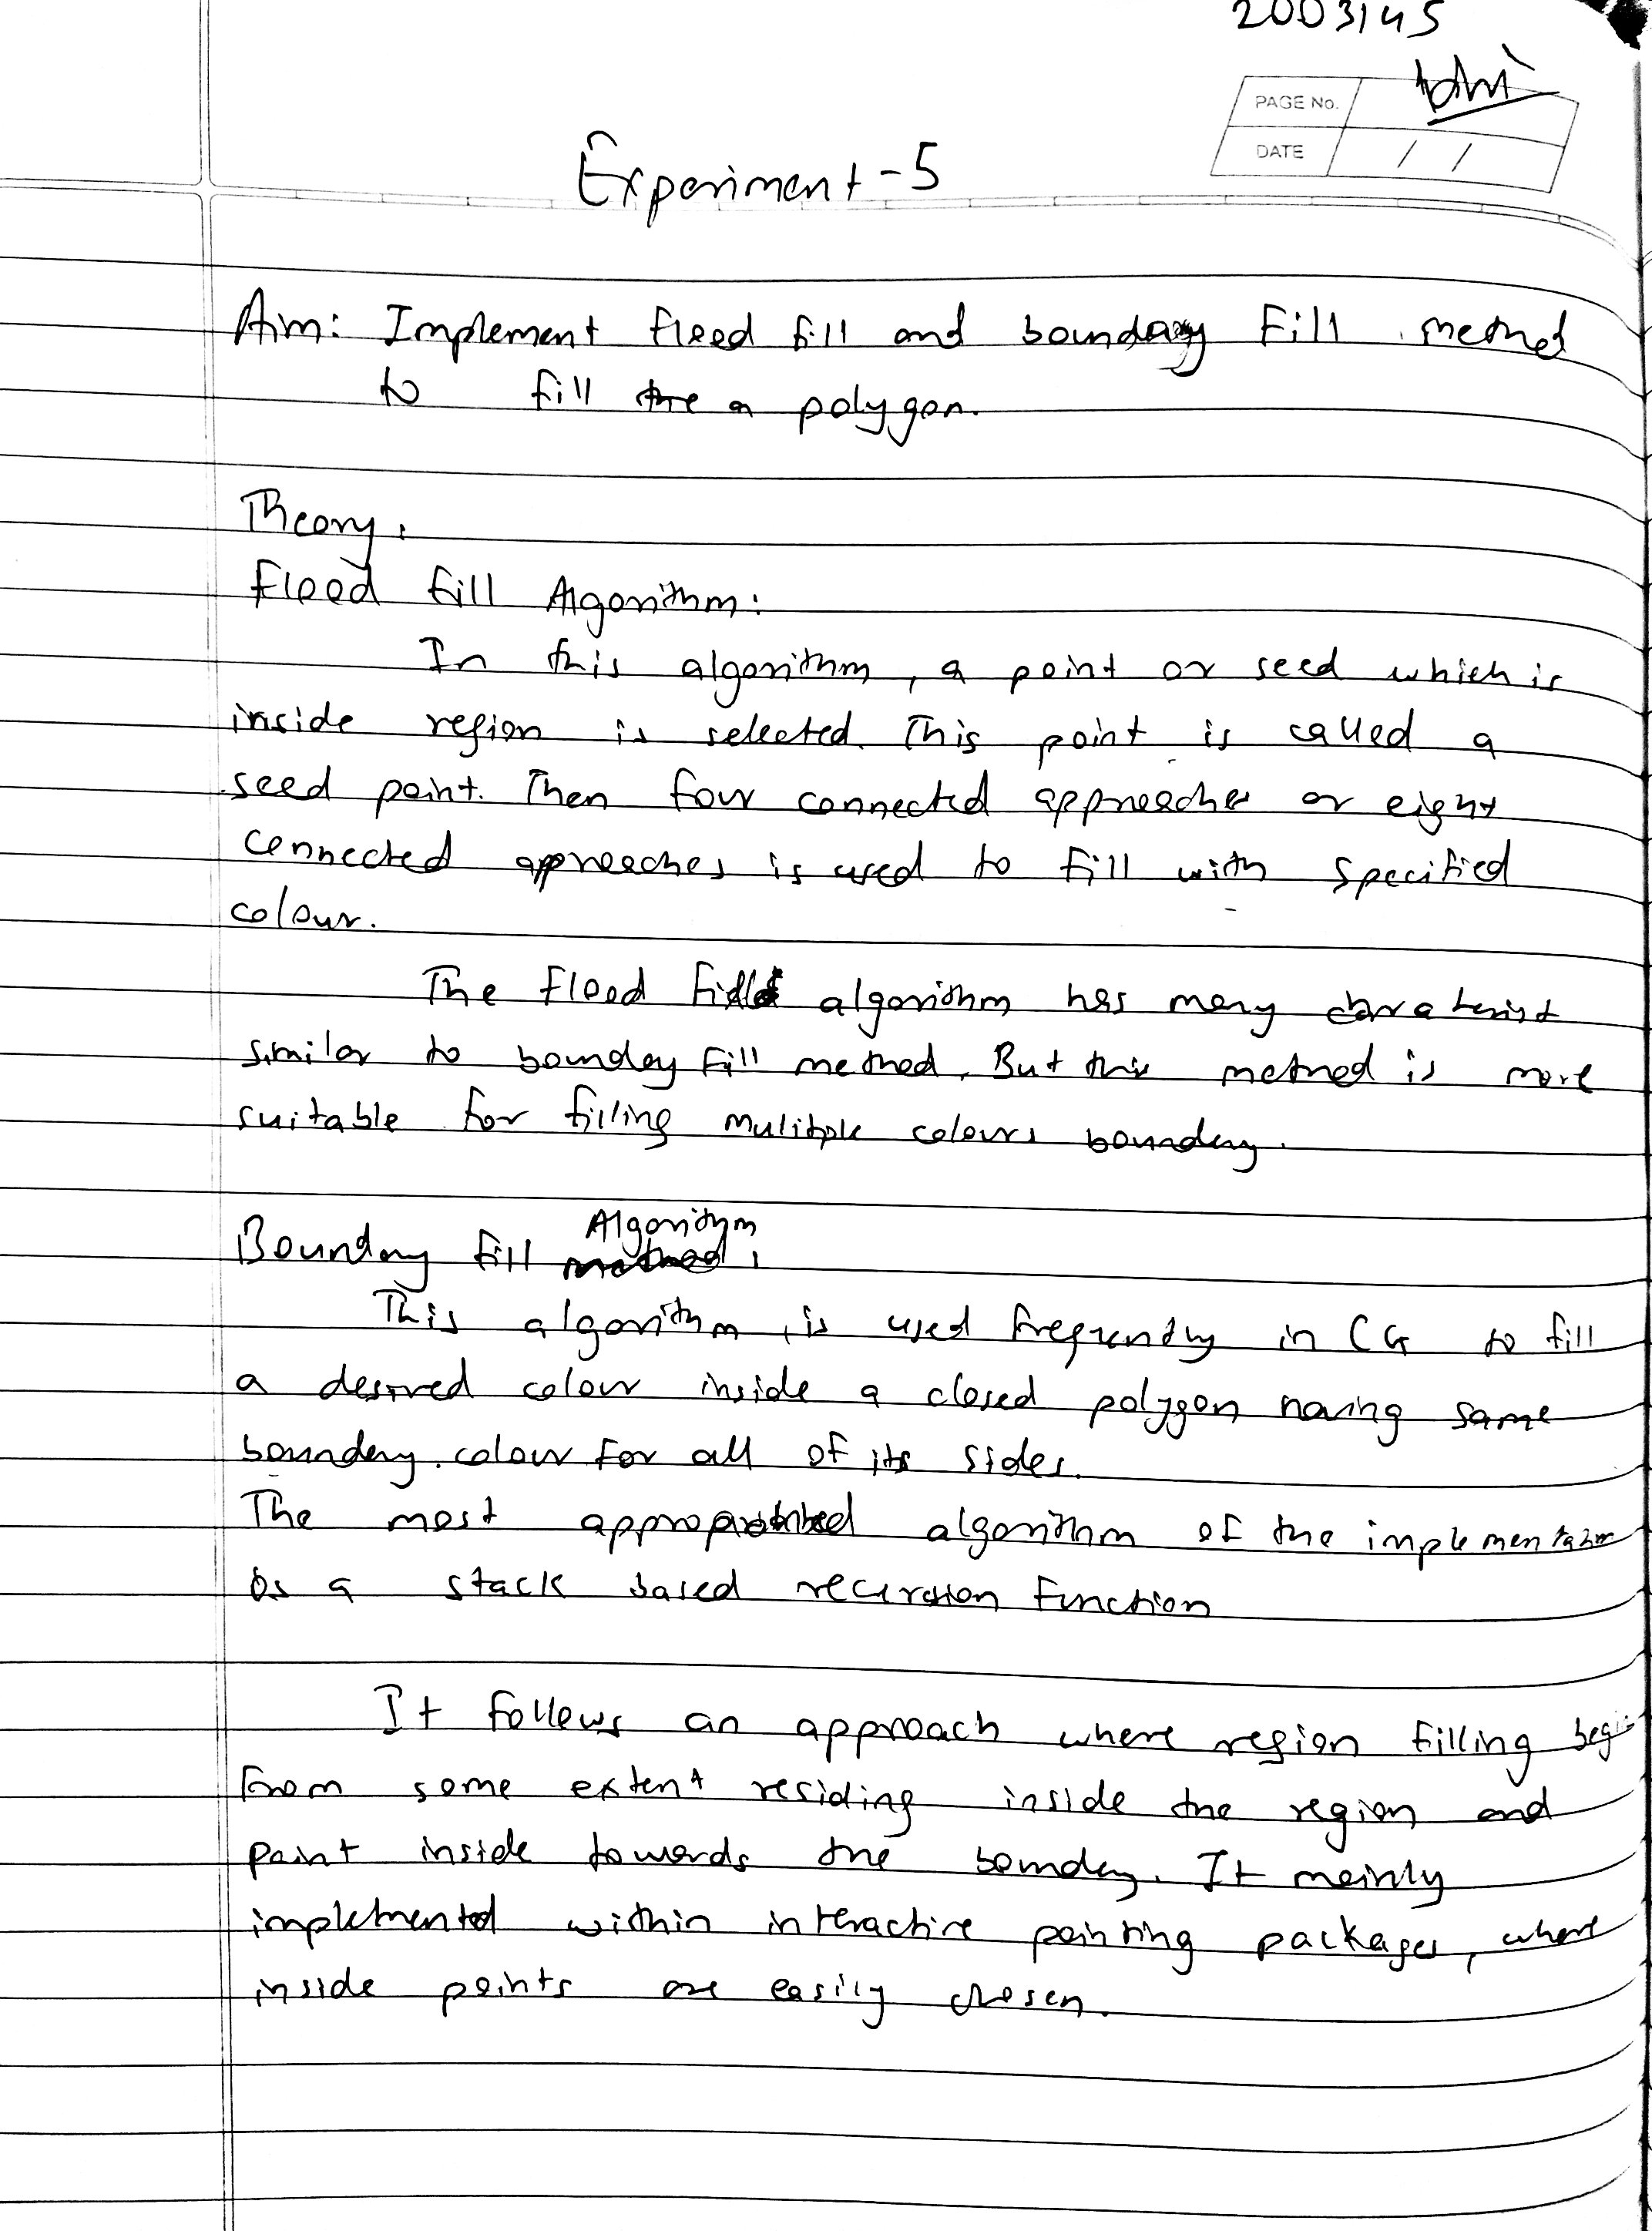 2003145
PAGE No.
DATE / /
Experiment-5
Aim: Implement flood fill and boundary Fill method
to fill the a polygon.
Theory:
Flood fill Algorithm:
In this algorithm, a point or seed which is
inside region is selected. This point is called a
seed point. Then four connected approaches or eight
connected approaches is used to fill with specified
colour.
The flood fill algorithm has many charaterist
similar to bounday Fill method. But this method is more
suitable for filling mulitple colours boundary.
Algorithm
Boundary fill method:
This algorithm is used frequently in CG to fill
a desired colour inside a closed polygon having same
boundary colour for all of its sides.
The most algorithm of the implementation
is a stack based recursion function
It follows an approach where region filling begi
from some extent residing inside the region and
paint inside towards the boundary. It mainly
implemented within interactive painting packages, where
inside points are easily chosen.